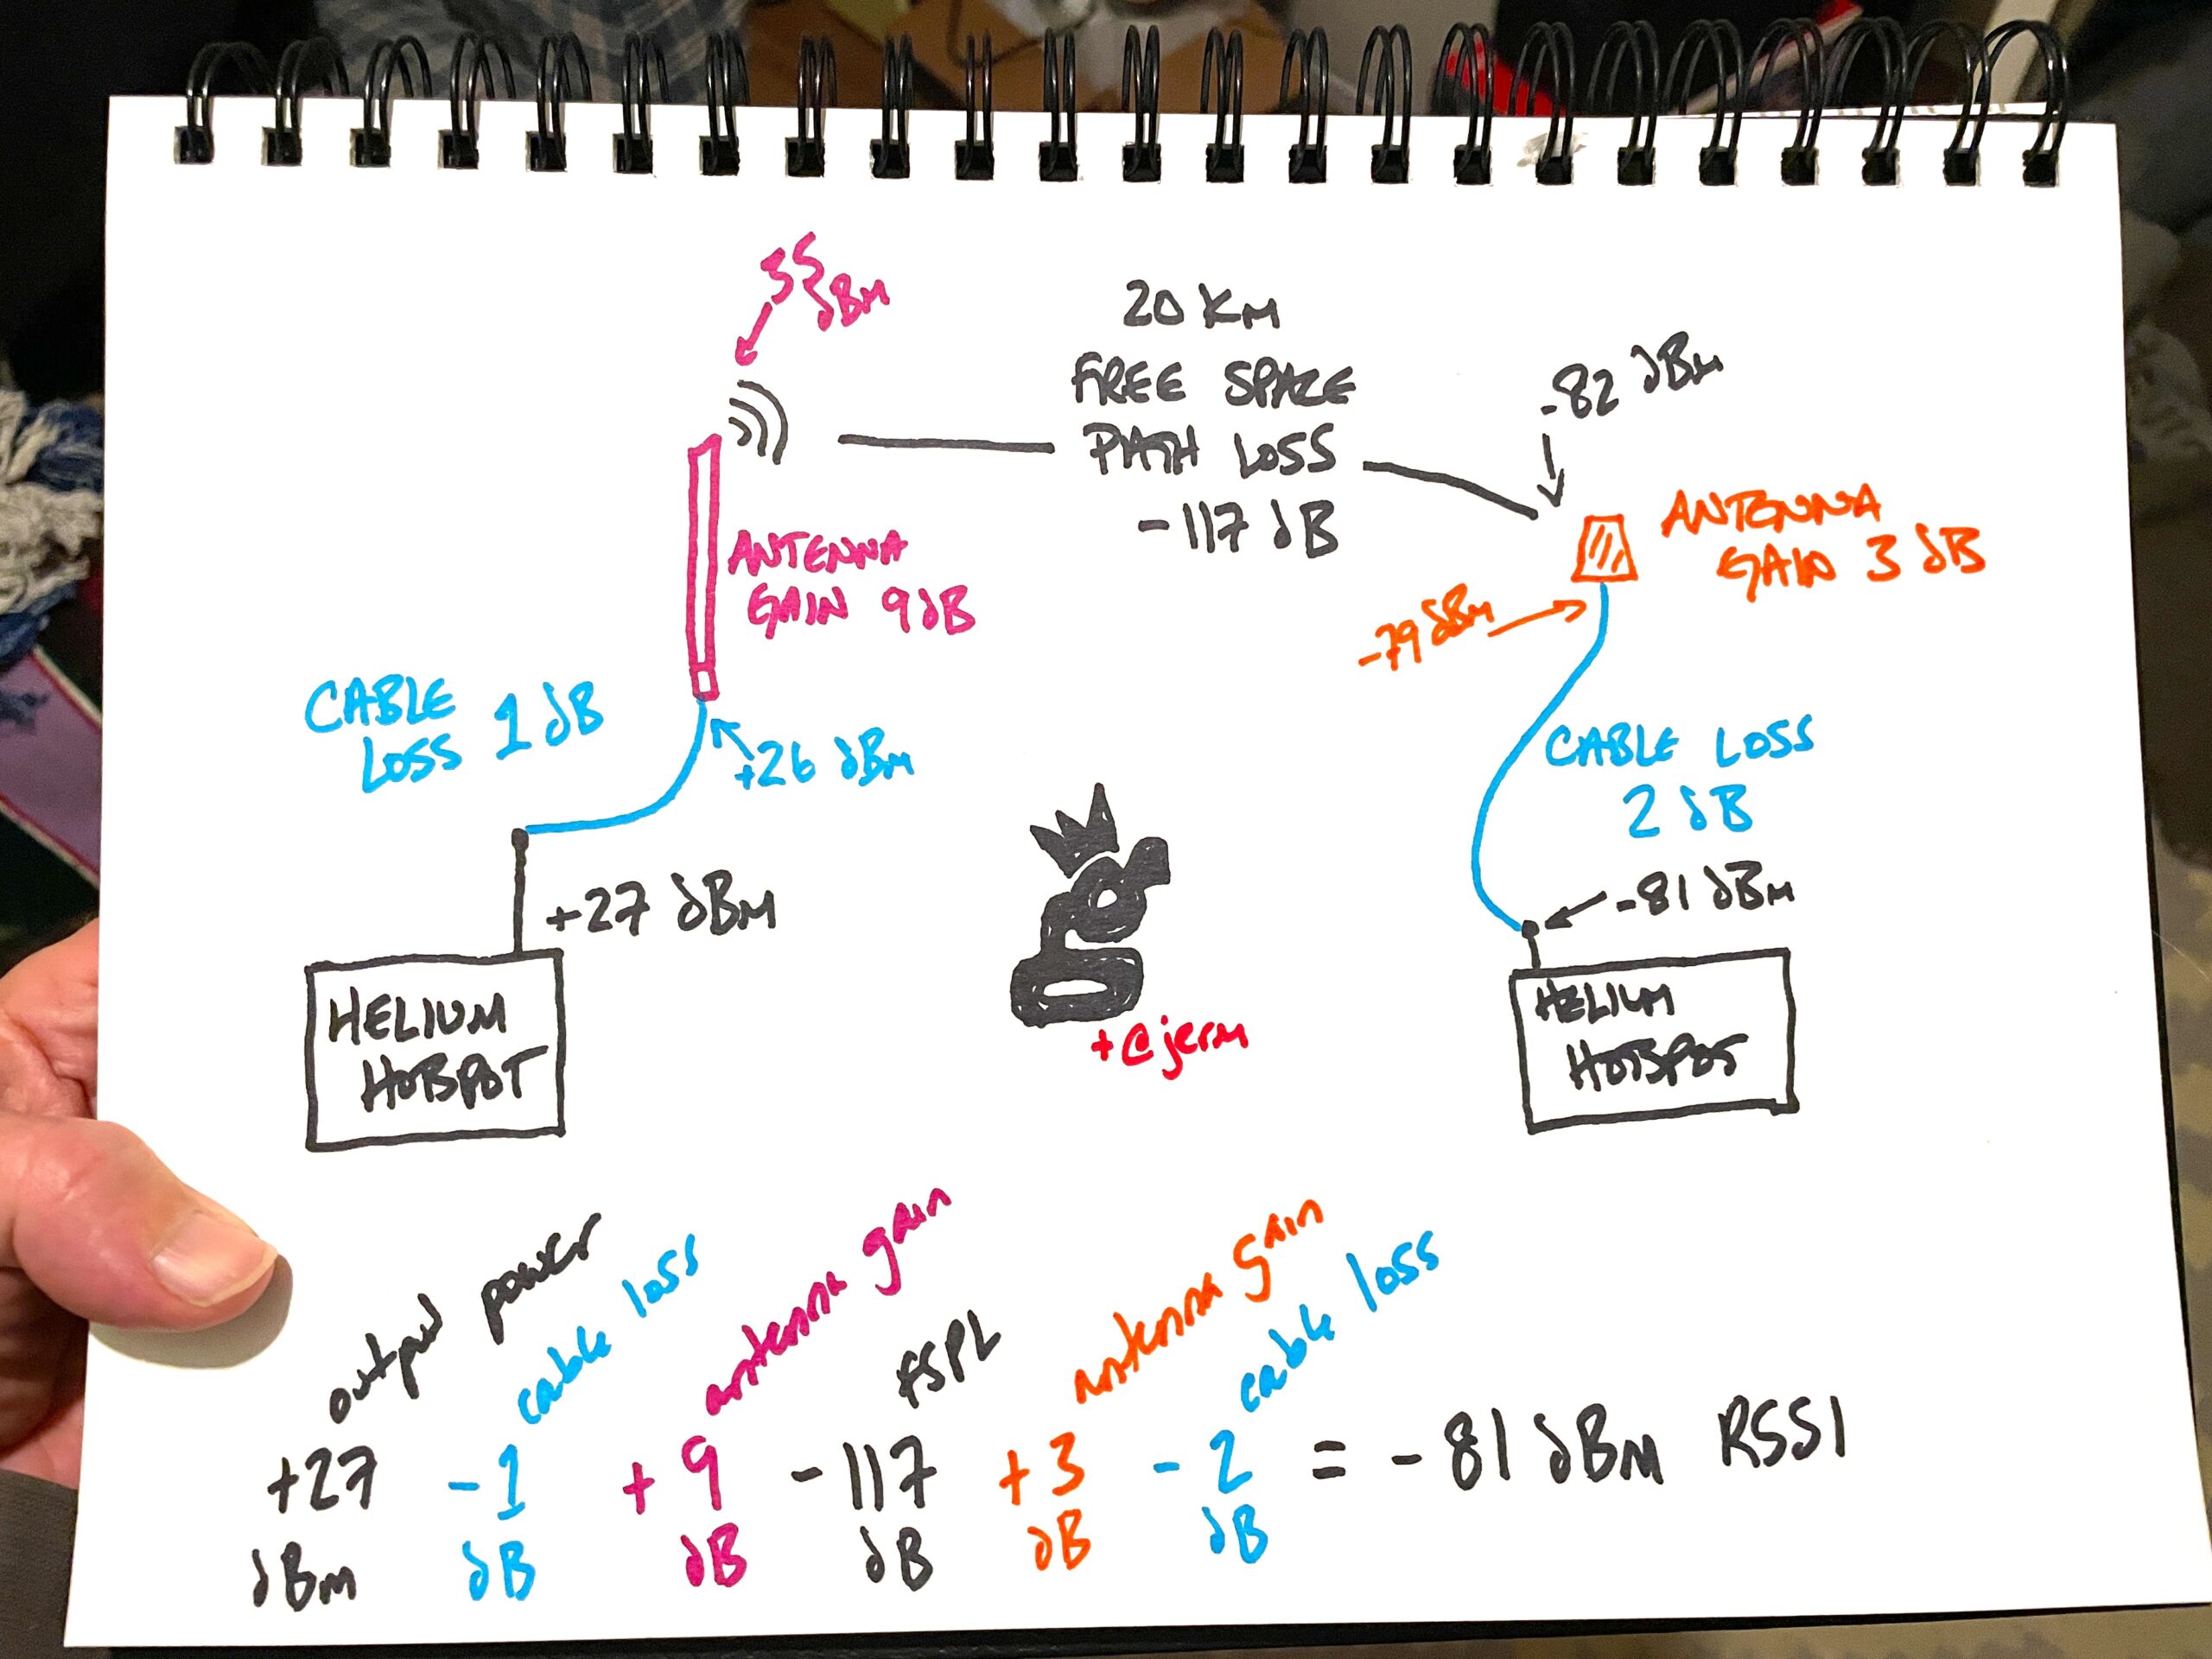 35
dBm
20 KM
FREE SPACE
PATH LOSS
-117 dB
-82 dBm
ANTENNA
GAIN 9dB
ANTENNA
GAIN 3 dB
-79 dBm
CABLE
LOSS 1 dB
+26 dBm
CABLE LOSS
2 dB
+27 dBm
-81 dBm
HELIUM
HOTSPOT
HELIUM
HOTSPOT
+@jerm
output power
cable loss
antenna gain
FSPL
antenna gain
cable loss
+27 -1 +9 -117 +3 -2 = -81 dBm RSSI
dBm dB dB dB dB dB